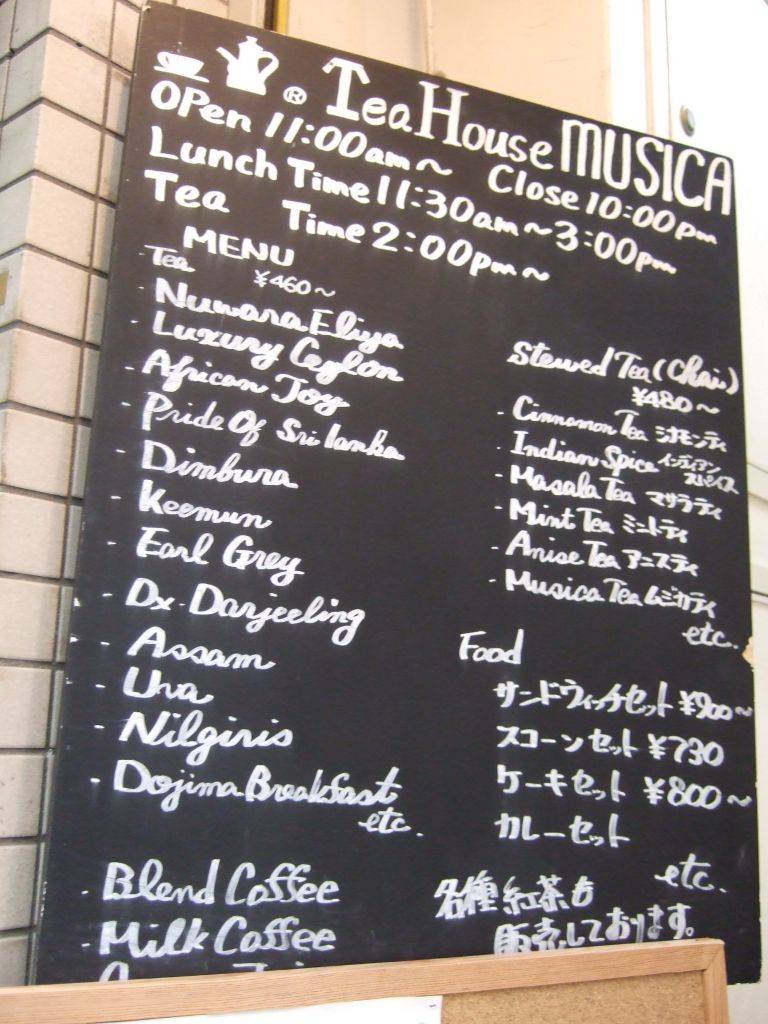 ® Tea House MUSICA
OPen 11:00am~ Close 10:00pm
Lunch Time 11:30am~3:00pm
Tea Time 2:00pm~
MENU
Tea ¥460~
- Nuwara Eliya
- Luxury Ceylon
- African Joy
- Pride Of Sri lanka
- Dimbura
- Keemun
- Earl Grey
- Dx. Darjeeling
- Assam
- Uva
- Nilgiris
- Dojima Breakfast
etc.
- Blend Coffee
- Milk Coffee
Stewed Tea (Chai)
¥480~
- Cinnamon Tea シナモンティ
- Indian Spice インディアンスパイス
- Masala Tea マサラティ
- Mint Tea ミントティ
- Anise Tea アニスティ
- Musica Tea ムジカティ
etc.
Food
サンドウィッチセット ¥900~
スコーンセット ¥730
ケーキセット ¥800~
カレーセット
etc.
各種紅茶も
販売しております。